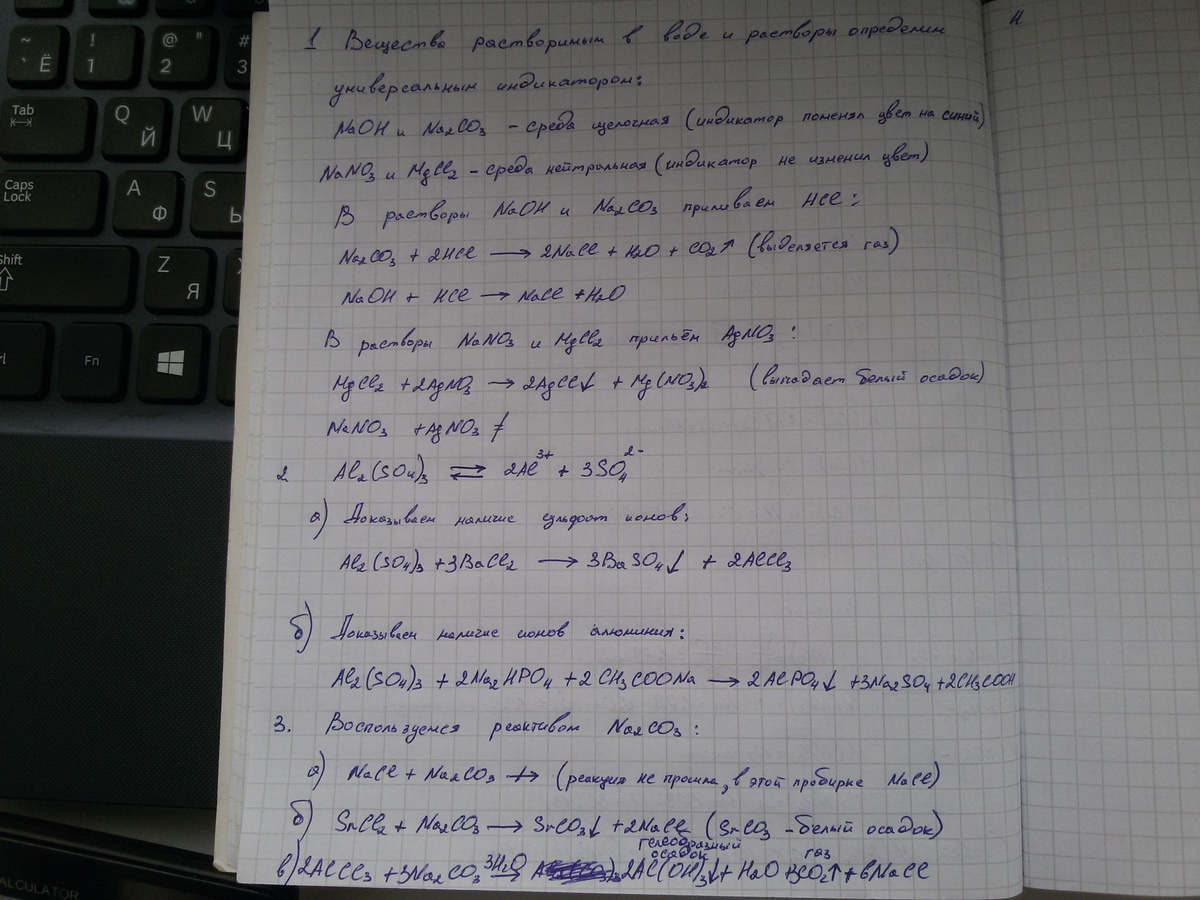 ~ ` Ё
! 1
@ " 2
# 3
Tab
Q Й
W Ц
Caps Lock
A Ф
S Ы
Shift
Z Я
Fn
CALCULATOR
1 Вещества растворимым в воде и растворы определим
универсальным индикатором:
NaOH и Na₂CO₃ – среда щелочная (индикатор поменял цвет на синий)
NaNO₃ и MgCl₂ – среда нейтральная (индикатор не изменил цвет)
В растворы NaOH и Na₂CO₃ приливаем HCl:
Na₂CO₃ + 2HCl → 2NaCl + H₂O + CO₂↑ (выделяется газ)
NaOH + HCl → NaCl + H₂O
В растворы NaNO₃ и MgCl₂ прильём AgNO₃:
MgCl₂ + 2AgNO₃ → 2AgCl↓ + Mg(NO₃)₂ (выпадает белый осадок)
NaNO₃ + AgNO₃ ≠
2. Al₂(SO₄)₃ ⇄ 2Al³⁺ + 3SO₄²⁻
а) Доказываем наличие сульфат ионов:
Al₂(SO₄)₃ + 3BaCl₂ → 3BaSO₄↓ + 2AlCl₃
б) Доказываем наличие ионов алюминия:
Al₂(SO₄)₃ + 2Na₂HPO₄ + 2CH₃COONa → 2AlPO₄↓ + 3Na₂SO₄ + 2CH₃COOH
3. Воспользуемся реактивом Na₂CO₃:
а) NaCl + Na₂CO₃ ↛ (реакция не прошла, в этой пробирке NaCl)
б) SrCl₂ + Na₂CO₃ → SrCO₃↓ + 2NaCl (SrCO₃ – белый осадок)
гелеобразный осадок газ
в) 2AlCl₃ + 3Na₂CO₃ 3H₂O → 2Al(OH)₃↓ + H₂O + 3CO₂↑ + 6NaCl